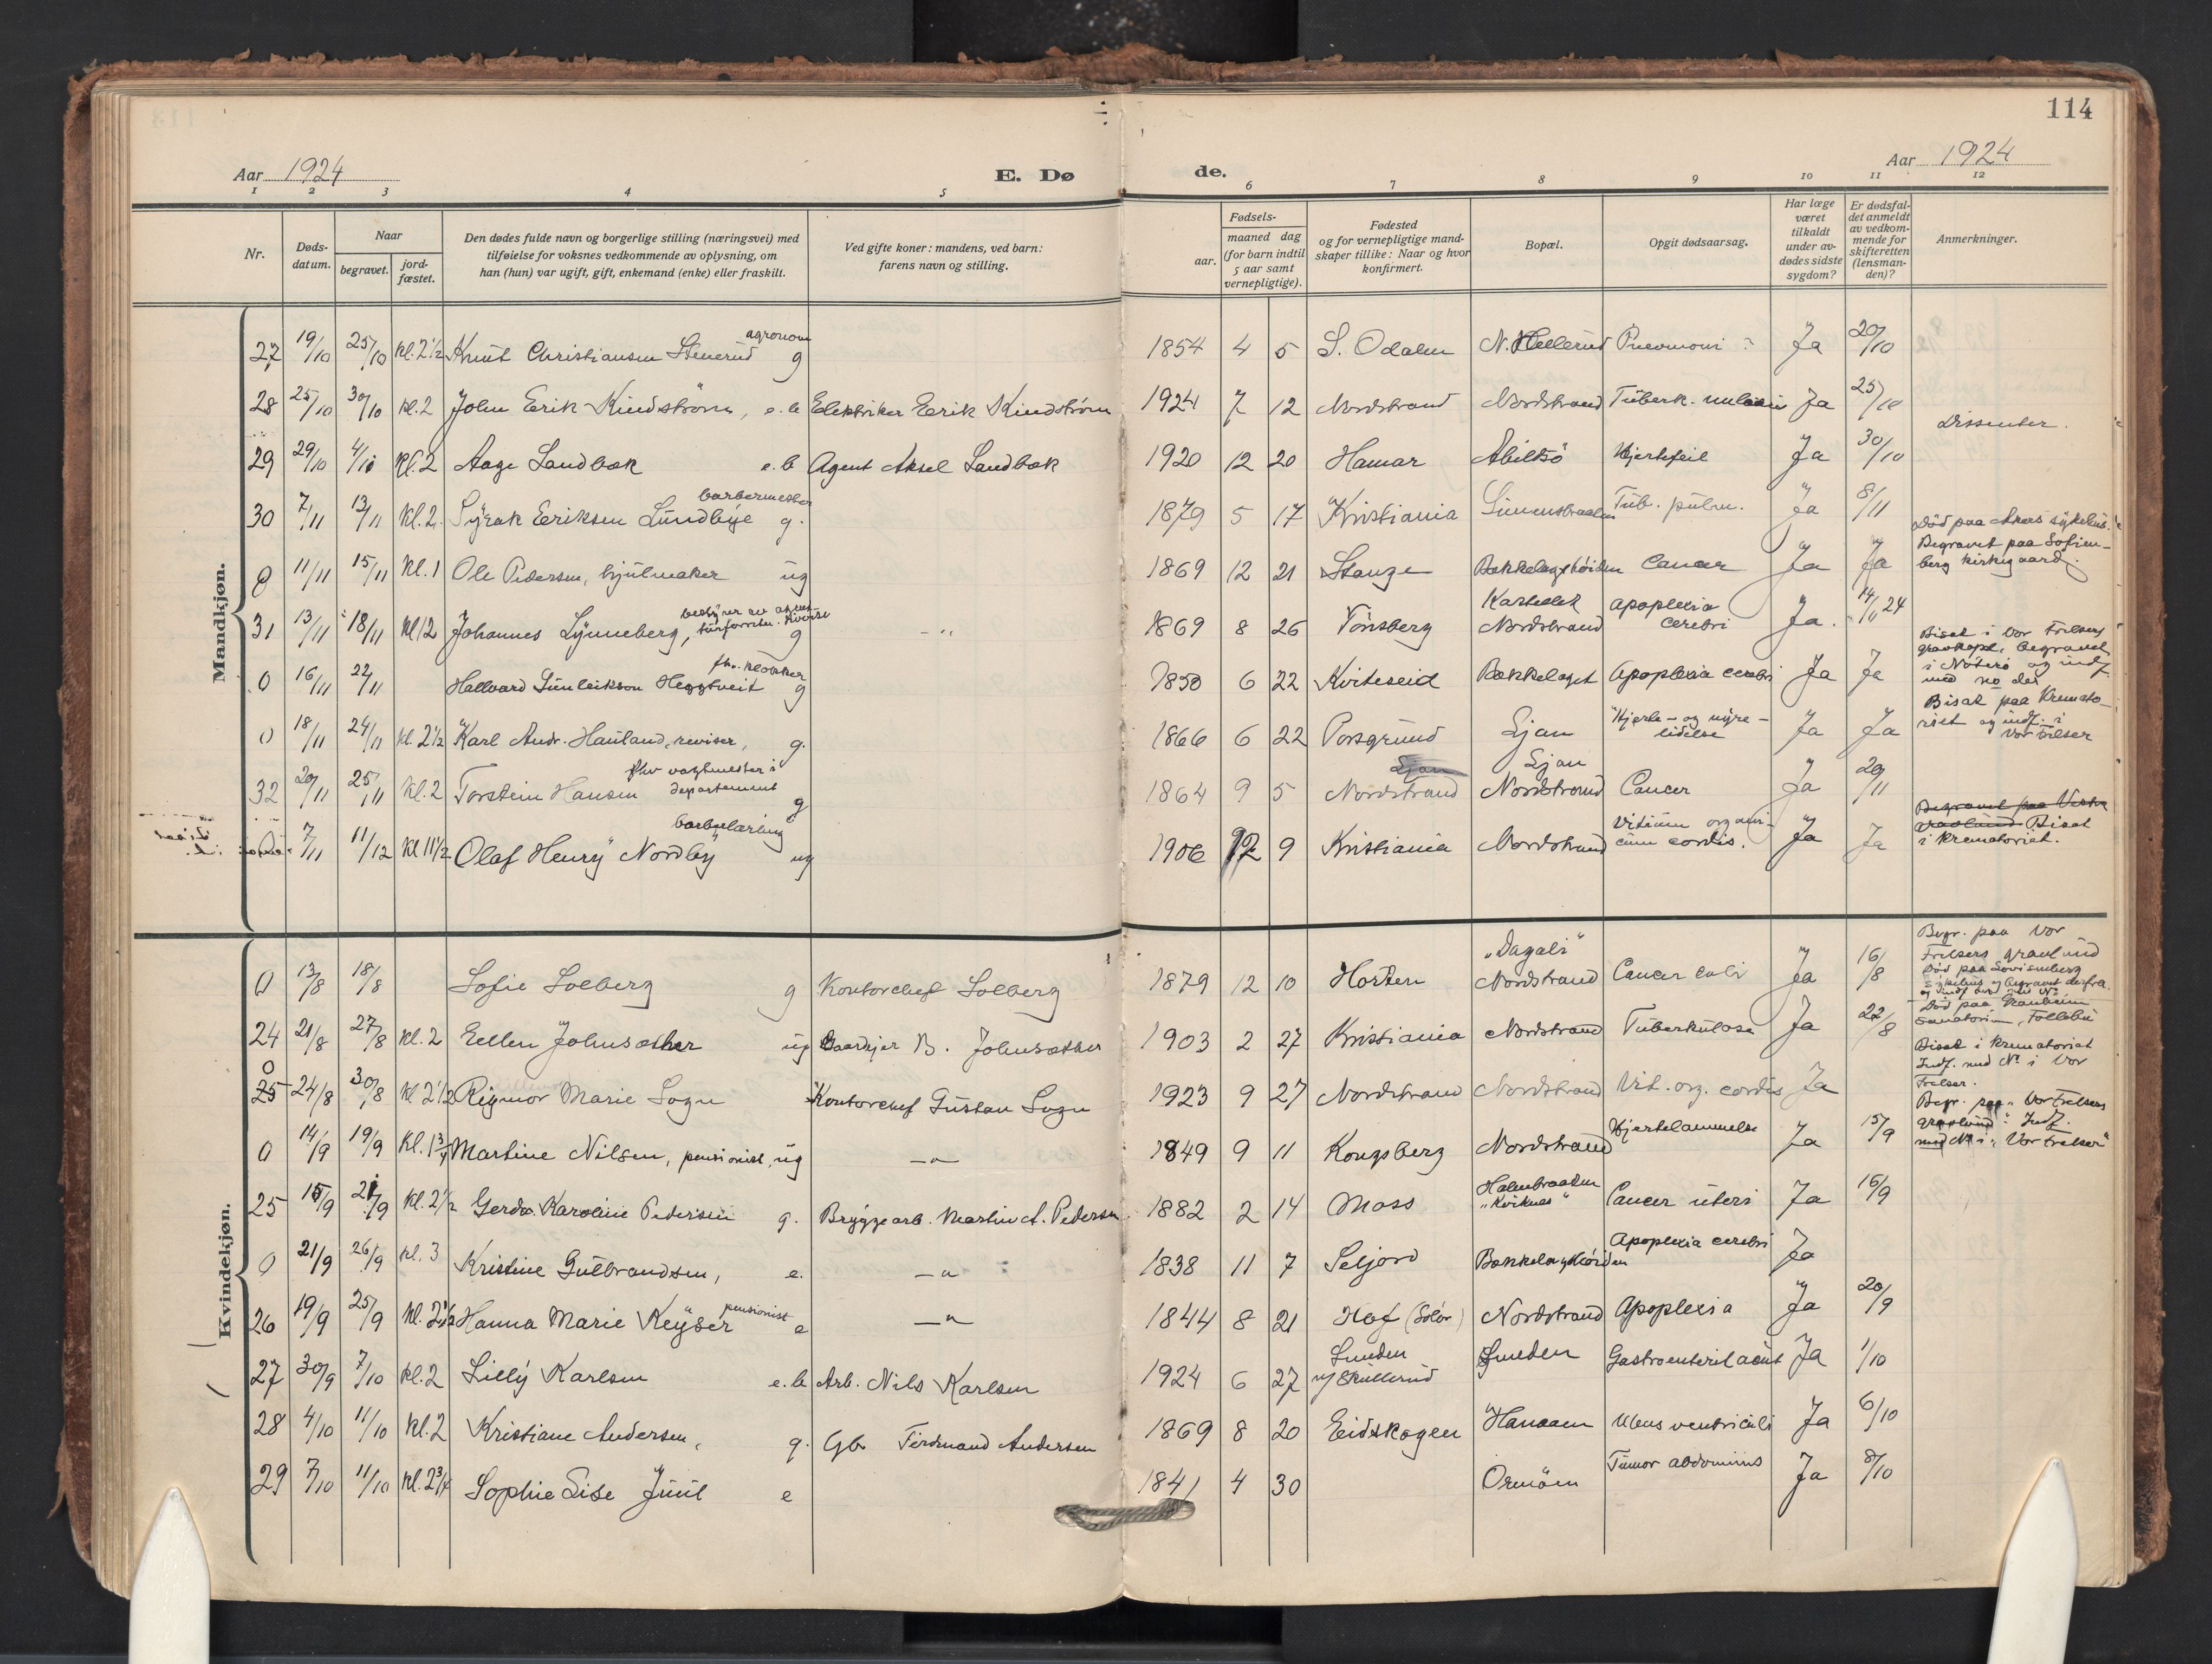 114
Aar 1924 E. Dø de. Aar 1924
1 2 3 4 5 6 7 8 9 10 11 12
Nr. Døds-datum. Naar begravet. jord-fæstet. Den dødes fulde navn og borgerlige stilling (næringsvei) med tilføielse for voksnes vedkommende av oplysning, om han (hun) var ugift, gift, enkemand (enke) eller fraskilt. Ved gifte koner: mandens, ved barn: farens navn og stilling. Fødsels- aar. maaned dag (for barn indtil 5 aar samt vernepligtige). Fødested og for vernepligtige mand-skaper tillike: Naar og hvor konfirmert. Bopæl. Opgit dødsaarsag. Har læge været tilkaldt under av-dødes sidste sygdom? Er dødsfal-det anmeldt av vedkom-mende for skifteretten (lensman-den)? Anmerkninger.
Mandkjøn.
27 19/10 25/10 kl. 2½ Knut Christiansen Stenerud agronom g 1854 4 5 S. Odalen N. Hellerud Pneumoni ? Ja 20/10
28 25/10 30/10 kl. 2 John Erik Kindström, e. b Elektriker Eerik Kindström 1924 7 12 Nordstrand Nordstrand Tüberk. Ja 25/10 Dissenter.
29 29/10 4/11 Kl. 2 Aage Sandbæk e. b Agent Aksel Sandbæk 1920 12 20 Hamar Abiltsö Hjertefeil Ja 30/10
30 7/11 13/11 Kl. 2. Syrak Eeriksen Lundbye barbermester g. 1879 5 17 Kristiania Simensbraaten Tüb. pülm. Ja 8/11
0 11/11 15/11 Kl. 1 Ole Pedersen, hjülmaker ug 1869 12 21 Stange Bækkelagshöiden Cancer Ja Ja Död paa Akers sykehüs. Begravet paa Sofien-berg kirkegaard.
31 13/11 18/11 Kl 12 Johannes Lynneberg, g - " 1869 8 26 Tönsberg Kastellet Nordstrand Apoplexia cerebri Ja. 14/11 24
0 16/11 22/11 Hallvard Günleikson Heggtveit fhv. klokker g 1850 6 22 Kviteseid Bækkelaget Apoplexia cerebri Ja Ja Bisat i Vor Frelsers gravkapl., begravet i Nöterö og indf. med no der
0 18/11 24/11 kl. 2½ Karl Andr. Hauland, revisor, g. 1866 6 22 Porsgrund Ljan Hjerte- og nyre-lidelse Ja Ja Bisat paa Kremato-riet og indf. i Vor Frelser
32 20/11 25/11 Kl. 2 Torstein Hansen fhv vagtmester i departement g 1864 9 5 Ljan Nordstrand Ljan Nordstrand Cancer Ja 20/11
0 7/11 11/12 Kl 11½ Olaf Henry Nordby ug 1906 12 9 Kristiania Nordstrand Vitium organi-cum cordis. Ja Ja Begravet paa Vestre gravlünd Bisat i krematoriet.
Kvindekjøn.
0 13/8 18/8 Sofie Solberg g Kontorchef Solberg 1879 12 10 Horten "Dagali" Nordstrand Cancer Ja 16/8 Begr. paa Vor Frelsers gravlund Död paa Lovisenberg sykehus
24 21/8 27/8 Kl. 2 Ellen Johnsæther ug Gaardejer B. Johnsæther 1903 2 27 Kristiania Nordstrand Tüberkülose Ja 22/8 Död paa Granheim sanatorium, Follebu
0 25 24/8 30/8 Kl 2½ Rigmor Marie Sogn Kontorchef Güstav Sogn 1923 9 27 Nordstrand Nordstrand Vit. org. cordis Ja Bisat i krematoriet Indf. med № i Vor Frelser.
0 14/9 19/9 Kl. 1¾ Martine Nilsen, pensionist, ug - " 1849 9 11 Kongsberg Nordstrand Hjertelammelse Ja 15/9 Begr. paa "Vor Frelsers gravlünd". Indf. med № i "Vor Frelser"
25 15/9 21/9 Kl. 2½ Gerda Karoline Pedersen g. Bryggearb. Martin A. Pedersen 1882 2 14 Moss Holmbraaten "Kviknes" Cancer üteri Ja 16/9
0 21/9 26/9 Kl. 3 Kristine Gülbrandsen, e. - " 1838 11 7 Seljord Bækkelagshöiden Apoplexia cerebri Ja
26 19/9 25/9 Kl. 2½ Hanna Marie Keyser pensionist e - " 1844 8 21 Hof (Solør) Nordstrand Apoplexia Ja 20/9
27 30/9 7/10 kl. 2 Lilly Karlsen e. b Arb. Nils Karlsen 1924 6 27 Smeden u/ Skullerüd Smeden Gastroenterit acut Ja 1/10
28 4/10 11/10 Kl. 2 Kristiane Andersen, g. Gb. Ferdinand Andersen 1869 8 20 Eidskogen Hanaaen Ulcus ventriculi Ja 6/10
29 7/10 11/10 Kl. 2¾ Sophie Lise Juul e 1841 4 30 Ormöen Tümor abdominis Ja 8/10